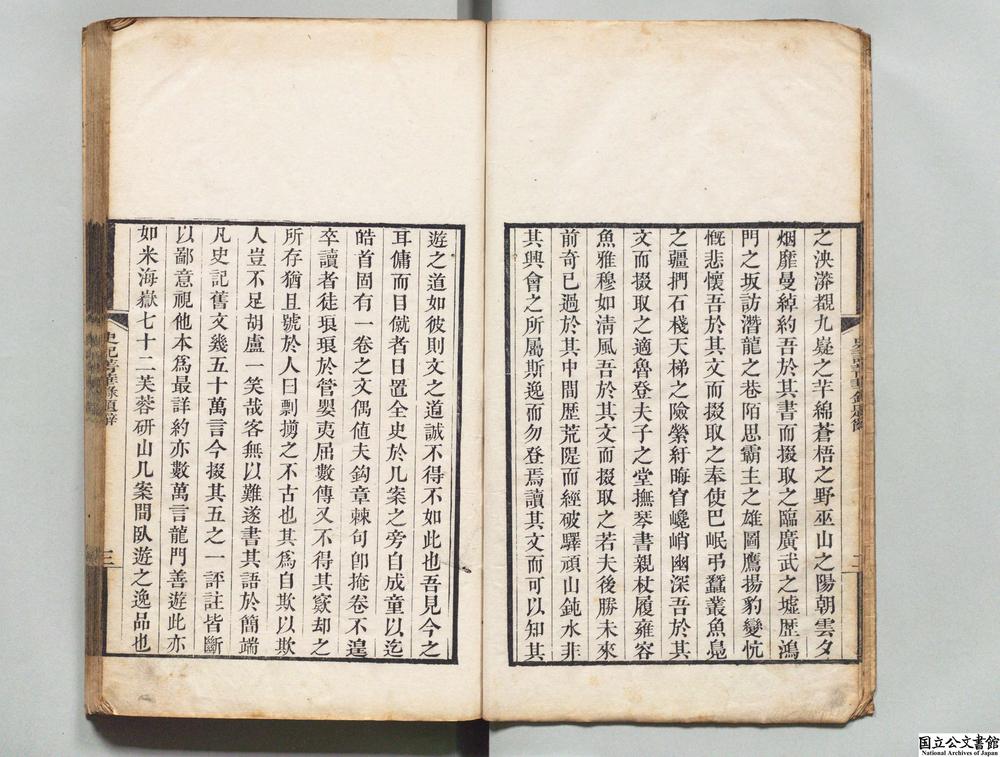 之泱漭覩九嶷之芊綿蒼梧之野巫山之陽朝雲夕
烟靡曼綽約吾於其書而掇取之臨廣武之墟歴鴻
門之坂訪潛龍之巷陌思霸主之雄圖鷹揚豹變忼
慨悲懷吾於其文而掇取之奉使巴岷弔蠶叢魚鳧
之疆捫石棧天梯之險縈紆晦窅巉峭幽深吾於其
文而掇取之適魯登夫子之堂撫琴書親杖履雍容
魚雅穆如淸風吾於其文而掇取之若夫後勝未來
前奇已過於其中間歴荒隄而經破驛頑山鈍水非
其興會之所屬斯逸而勿登焉讀其文而可以知其
遊之道如彼則文之道誠不得不如此也吾見今之
耳傭而目僦者日置全史於几案之旁自成童以迄
皓首固有一卷之文偶値夫鈎章棘句卽掩卷不遑
卒讀者徒琅琅於管嬰夷屈數傳又不得其窽却之
所存猶且號於人曰剽搒之不古也其爲自欺以欺
人豈不足胡盧一笑哉客無以難遂書其語於簡端
凡史記舊文幾五十萬言今掇其五之一評註皆斷
以鄙意視他本爲最詳約亦數萬言龍門善遊此亦
如米海嶽七十二芙蓉研山几案間臥遊之逸品也
史記菁華錄題辭
三
国立公文書館
National Archives of Japan